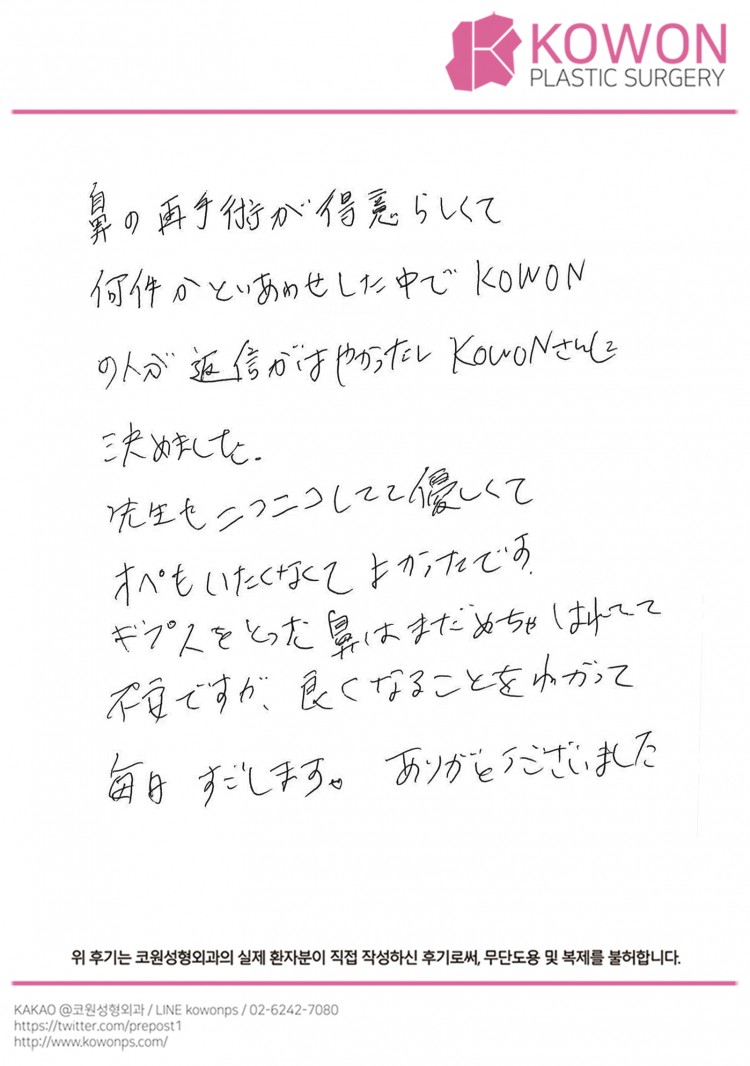 KOWON
PLASTIC SURGERY
鼻の再手術が得意らしくて
何件かといあわせした中でKOWON
の人が返信がはやかったしKOWONさんに
決めました。
先生もニコニコしてて優しくて
オペもいたくなくてよかったです.
ギプスをとった鼻はまだめちゃはれてて
不安ですが、良くなることをねがって
毎日すごします。 ありがとうございました
위 후기는 코원성형외과의 실제 환자분이 직접 작성하신 후기로써, 무단도용 및 복제를 불허합니다.
KAKAO @코원성형외과 / LINE kowonps / 02-6242-7080
https://twitter.com/prepost1
http://www.kowonps.com/